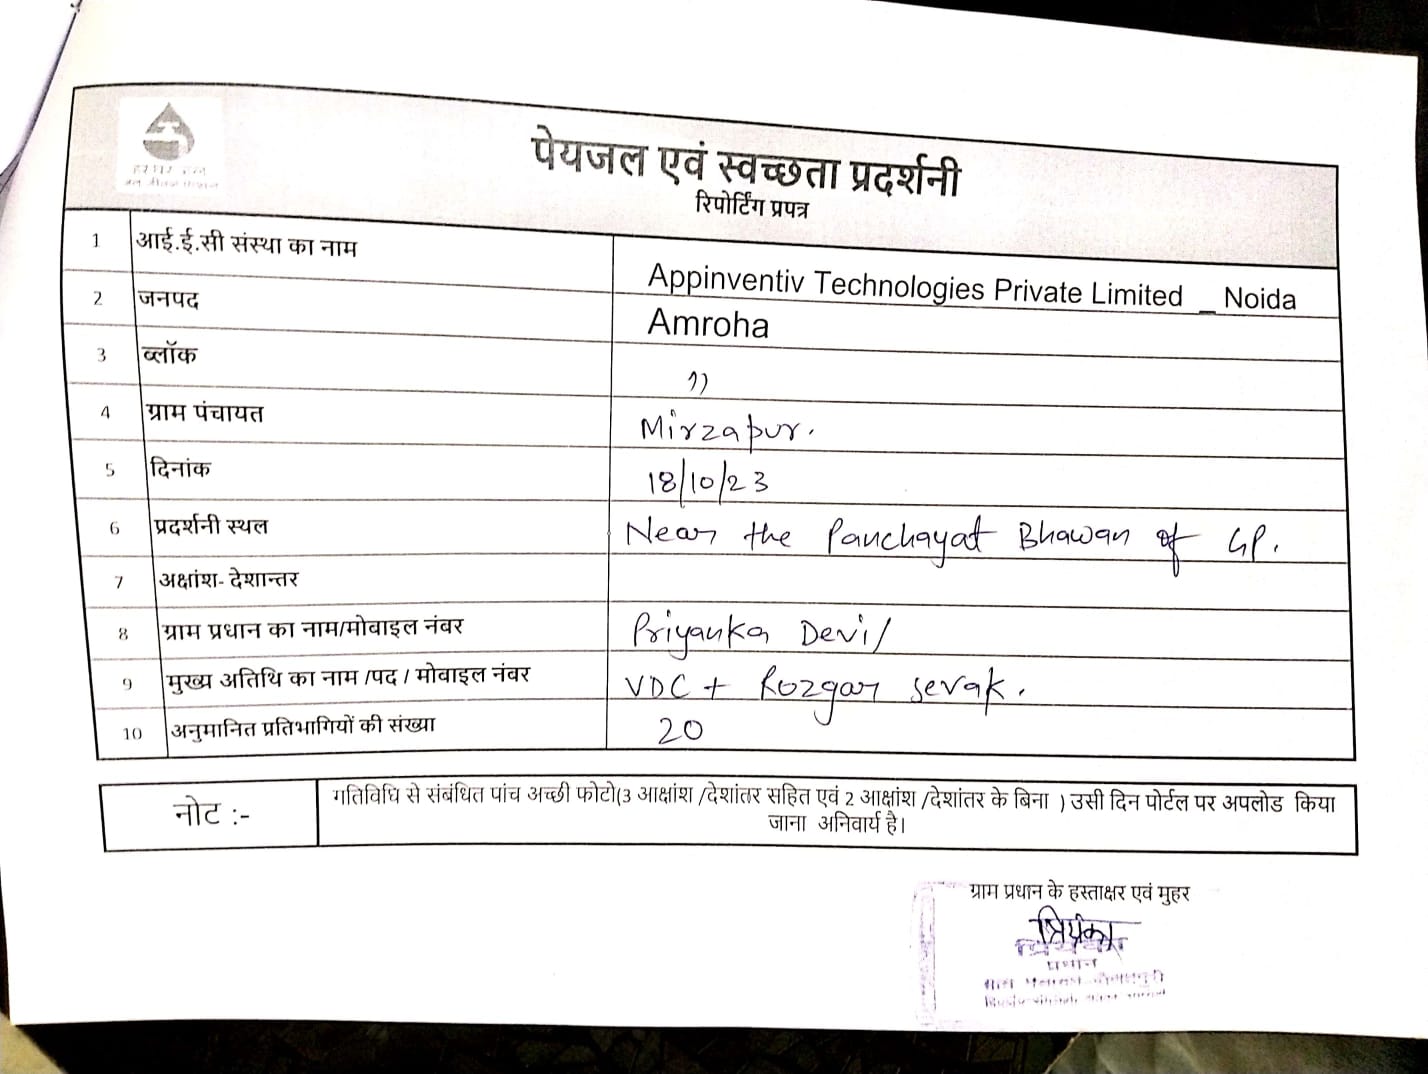 पेयजल एवं स्वच्छता प्रदर्शनी
रिपोर्टिंग प्रपत्र
1 आई.ई.सी संस्था का नाम Appinventiv Technologies Private Limited _ Noida
2 जनपद Amroha
3 ब्लॉक ")
4 ग्राम पंचायत Mirzapur.
5 दिनांक 18/10/23
6 प्रदर्शनी स्थल Near the Panchayat Bhawan of GP.
7 अक्षांश- देशान्तर
8 ग्राम प्रधान का नाम/मोबाइल नंबर Priyanka Devi/
9 मुख्य अतिथि का नाम /पद / मोबाइल नंबर VDC + Rozgar sevak.
10 अनुमानित प्रतिभागियों की संख्या 20
नोट :- गतिविधि से संबंधित पांच अच्छी फोटो(3 आक्षांश /देशांतर सहित एवं 2 आक्षांश /देशांतर के बिना ) उसी दिन पोर्टल पर अपलोड किया
जाना अनिवार्य है।
ग्राम प्रधान के हस्ताक्षर एवं मुहर
प्रियंका
प्रधान